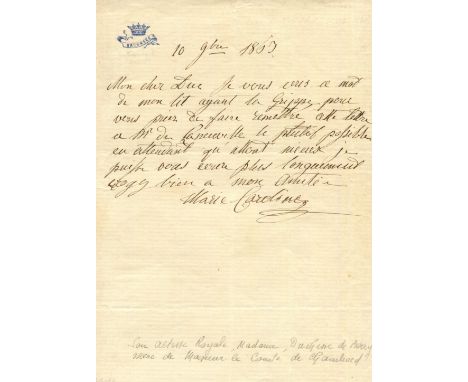 10 9bre 1853
Mon cher Duc Je vous écris ce mot
de mon lit ayant la Grippe pour
vous prier de faire remettre cette lettre
a Mr de le plutot possible
en attendant qu'allant mieux je
puisse vous écrire plus longuement
bien a mon amitié
Marie Caroline
Son altesse Royale, Madame, Duchesse de Berry
mère de Monsieur le Comte de Chambord